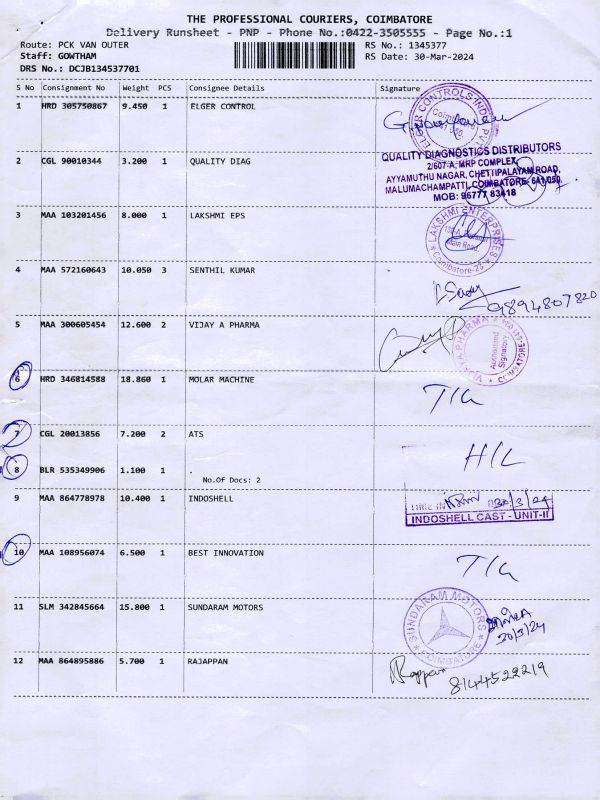 THE PROFESSIONAL COURIERS, COIMBATORE
Delivery Runsheet - PNP - Phone No.:0422-3505555 - Page No.:1
Route: PCK VAN OUTER RS No.: 1345377
Staff: GOWTHAM RS Date: 30-Mar-2024
DRS No.: DCJB134537701
S No Consignment No Weight PCS Consignee Details Signature
1 HRD 305750867 9.450 1 ELGER CONTROL
ELGER CONTROLS INDIA PVT
Coimbatore
2 CGL 90010344 3.200 1 QUALITY DIAG
QUALITY DIAGNOSTICS DISTRIBUTORS
2/607-A, MRP COMPLEX,
AYYAMUTHU NAGAR, CHETTIPALAYAM ROAD,
MALUMACHAMPATTI, COIMBATORE- 641 050.
MOB: 96777 83418
3 MAA 103201456 8.000 1 LAKSHMI EPS
LAKSHMI ENTERPRISES
Main Road,
Coimbatore-23
4 MAA 572160643 10.050 3 SENTHIL KUMAR
9894807820
5 MAA 300605454 12.600 2 VIJAY A PHARMA
VIJAYA PHARMA
Authorised
Signatory
COIMBATORE
6 HRD 346814588 18.860 1 MOLAR MACHINE T/G
7 CGL 20013856 7.200 2 ATS H/L
8 BLR 535349906 1.100 1 .
No.Of Docs: 2
9 MAA 864778978 10.400 1 INDOSHELL
30/3/24
INDOSHELL CAST - UNIT-II
10 MAA 108956074 6.500 1 BEST INNOVATION T/G
11 SLM 342845664 15.800 1 SUNDARAM MOTORS
SUNDARAM MOTORS
COIMBATORE
30/3/24
12 MAA 864895886 5.700 1 RAJAPPAN
8144522219